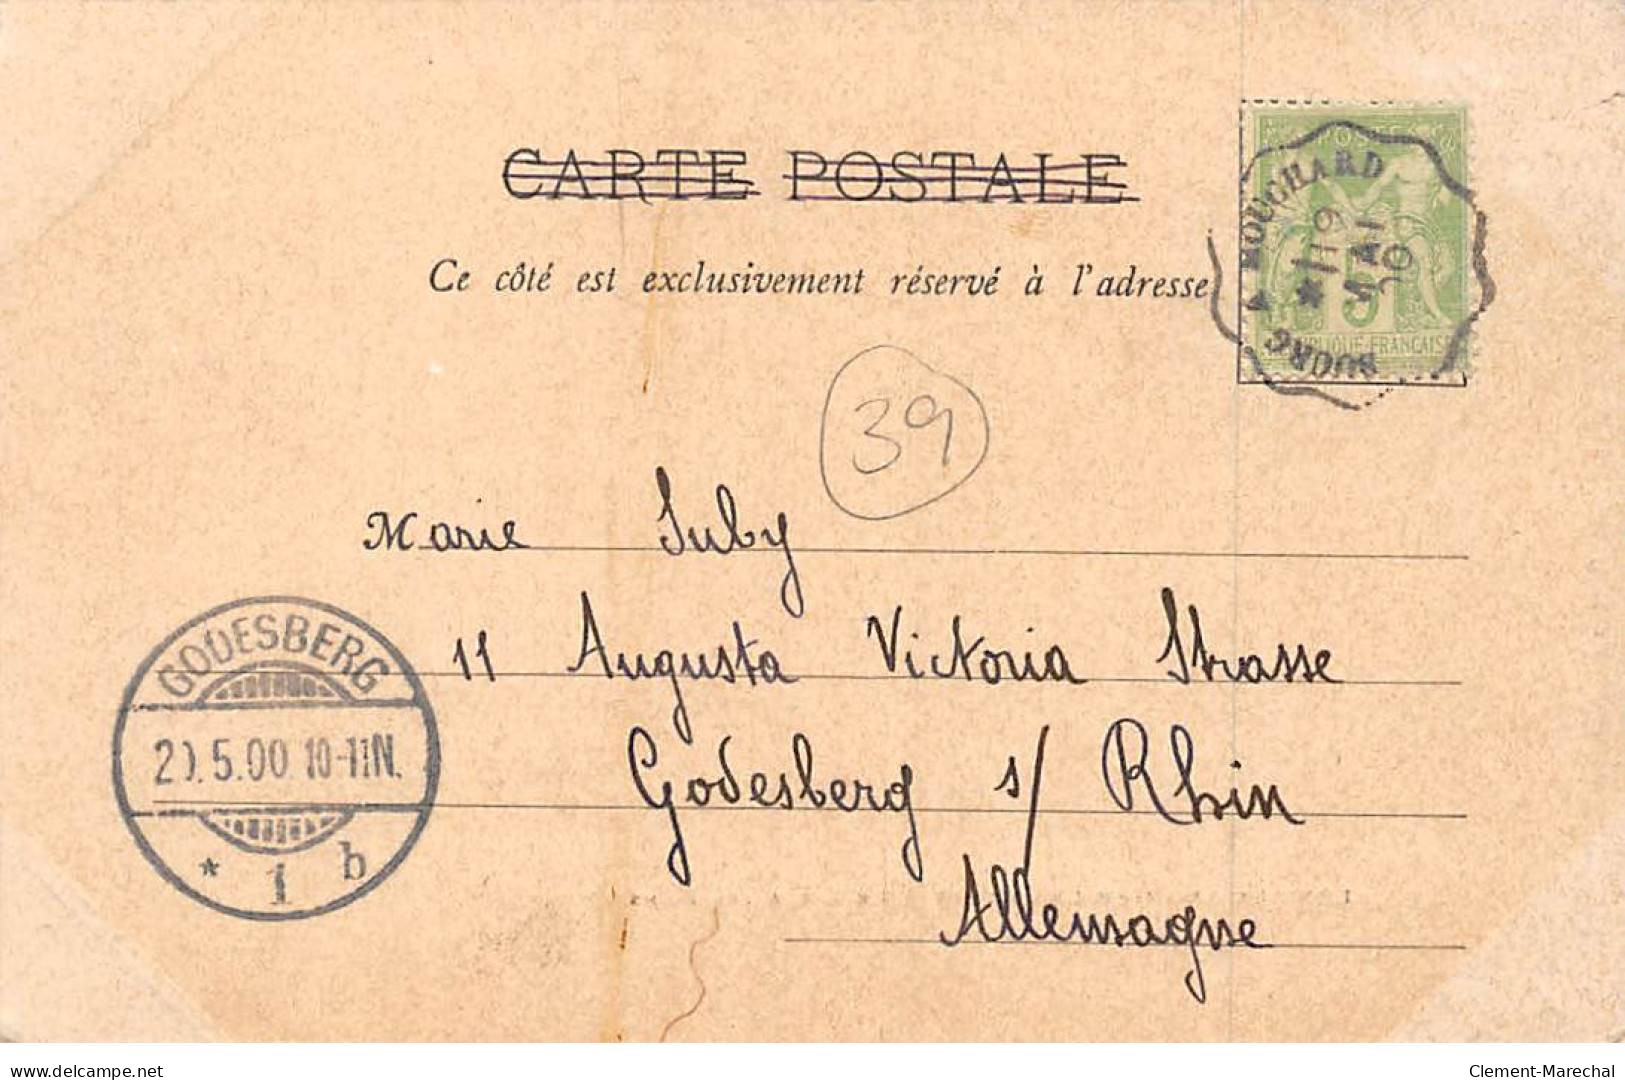 CARTE POSTALE
Ce côté est exclusivement réservé à l'adresse
MOUCHARD
*/19
MAI
00
BOURG
5
RÉPUBLIQUE FRANÇAISE
39
Marie Suby
11 Augusta Victoria Strasse
Godesberg s/ Rhin
Allemagne
GODESBERG
20.5.00 10-11N.
* 1 b
delcampe.net
Clement-Marechal